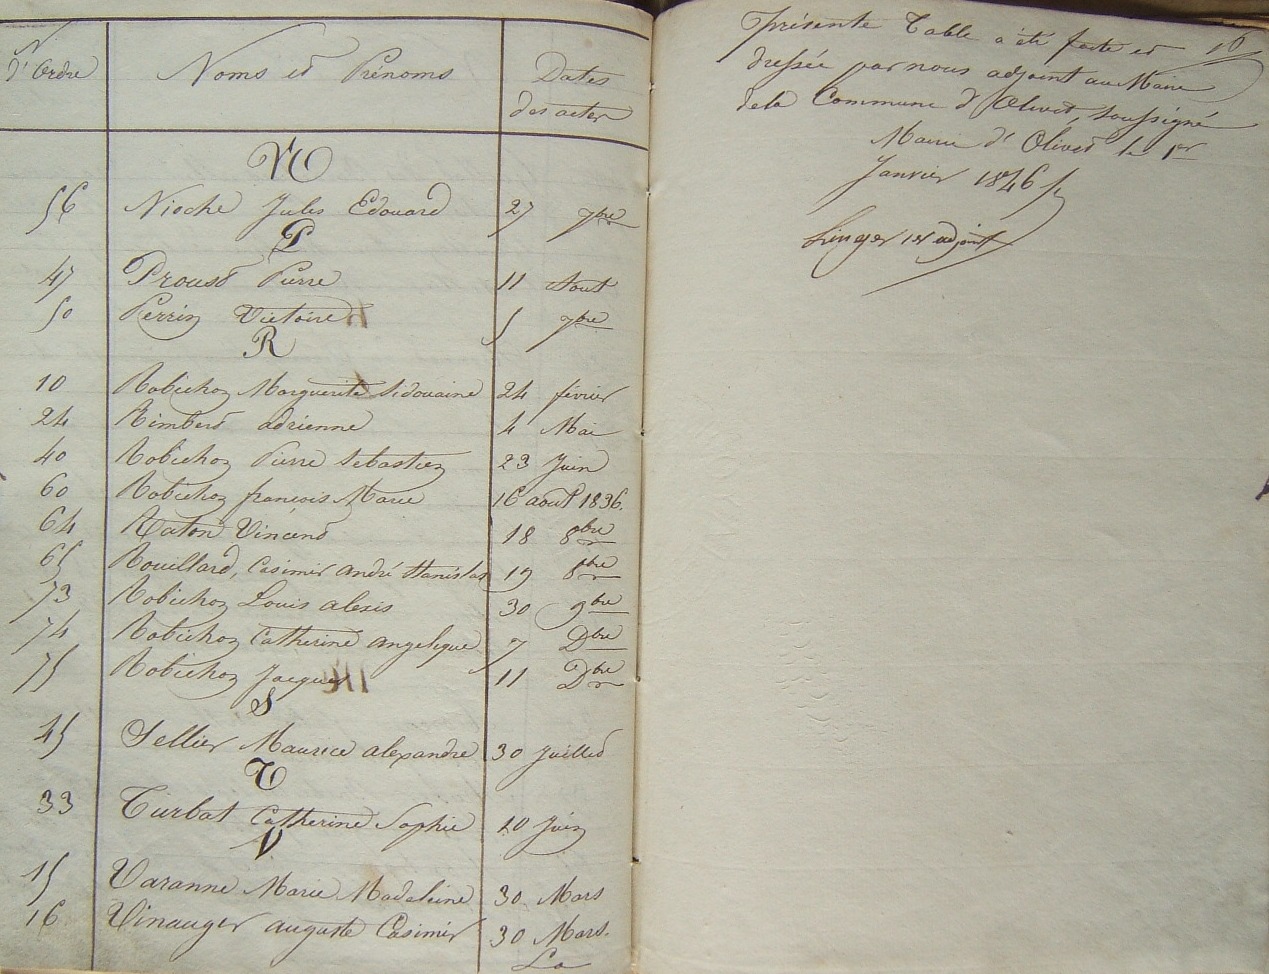 N° d'Ordre Noms et Prénoms Dates des actes
N
56 Nioche Jules Edouard 27 7bre
P
47 Proust Pierre 11 Aout
50 Perrin Victoire 5 7bre
R
10 Robichon Marguerite Sidonaine 24 février
24 Rimbert adrienne 4 Mai
40 Robichon Pierre Sebastien 23 Juin
60 Robichon françois Marie 16 aout 1836.
64 Raton Vincent 18 8bre
65 Rouillard, Casimir andré Stanislas 19 8bre
73 Robichon Louis alexis 30 9bre
74 Robichon Catherine angelique 7 Dbre
75 Robichon Jacques 11 Dbre
S
45 Sellier Maurice alexandre 30 Juillet
T
33 Turbat Catherine Sophie 10 Juin
V
15 Varanne Marie Madeleine 30 Mars
16 Vinauger auguste Casimir 30 Mars.
La
présente Table a été faite et 16
dressée par nous adjoint au Maire
de la Commune d'Olivet, soussigné
Mairie d'Olivet le 1er
Janvier 1846
1er adjoint